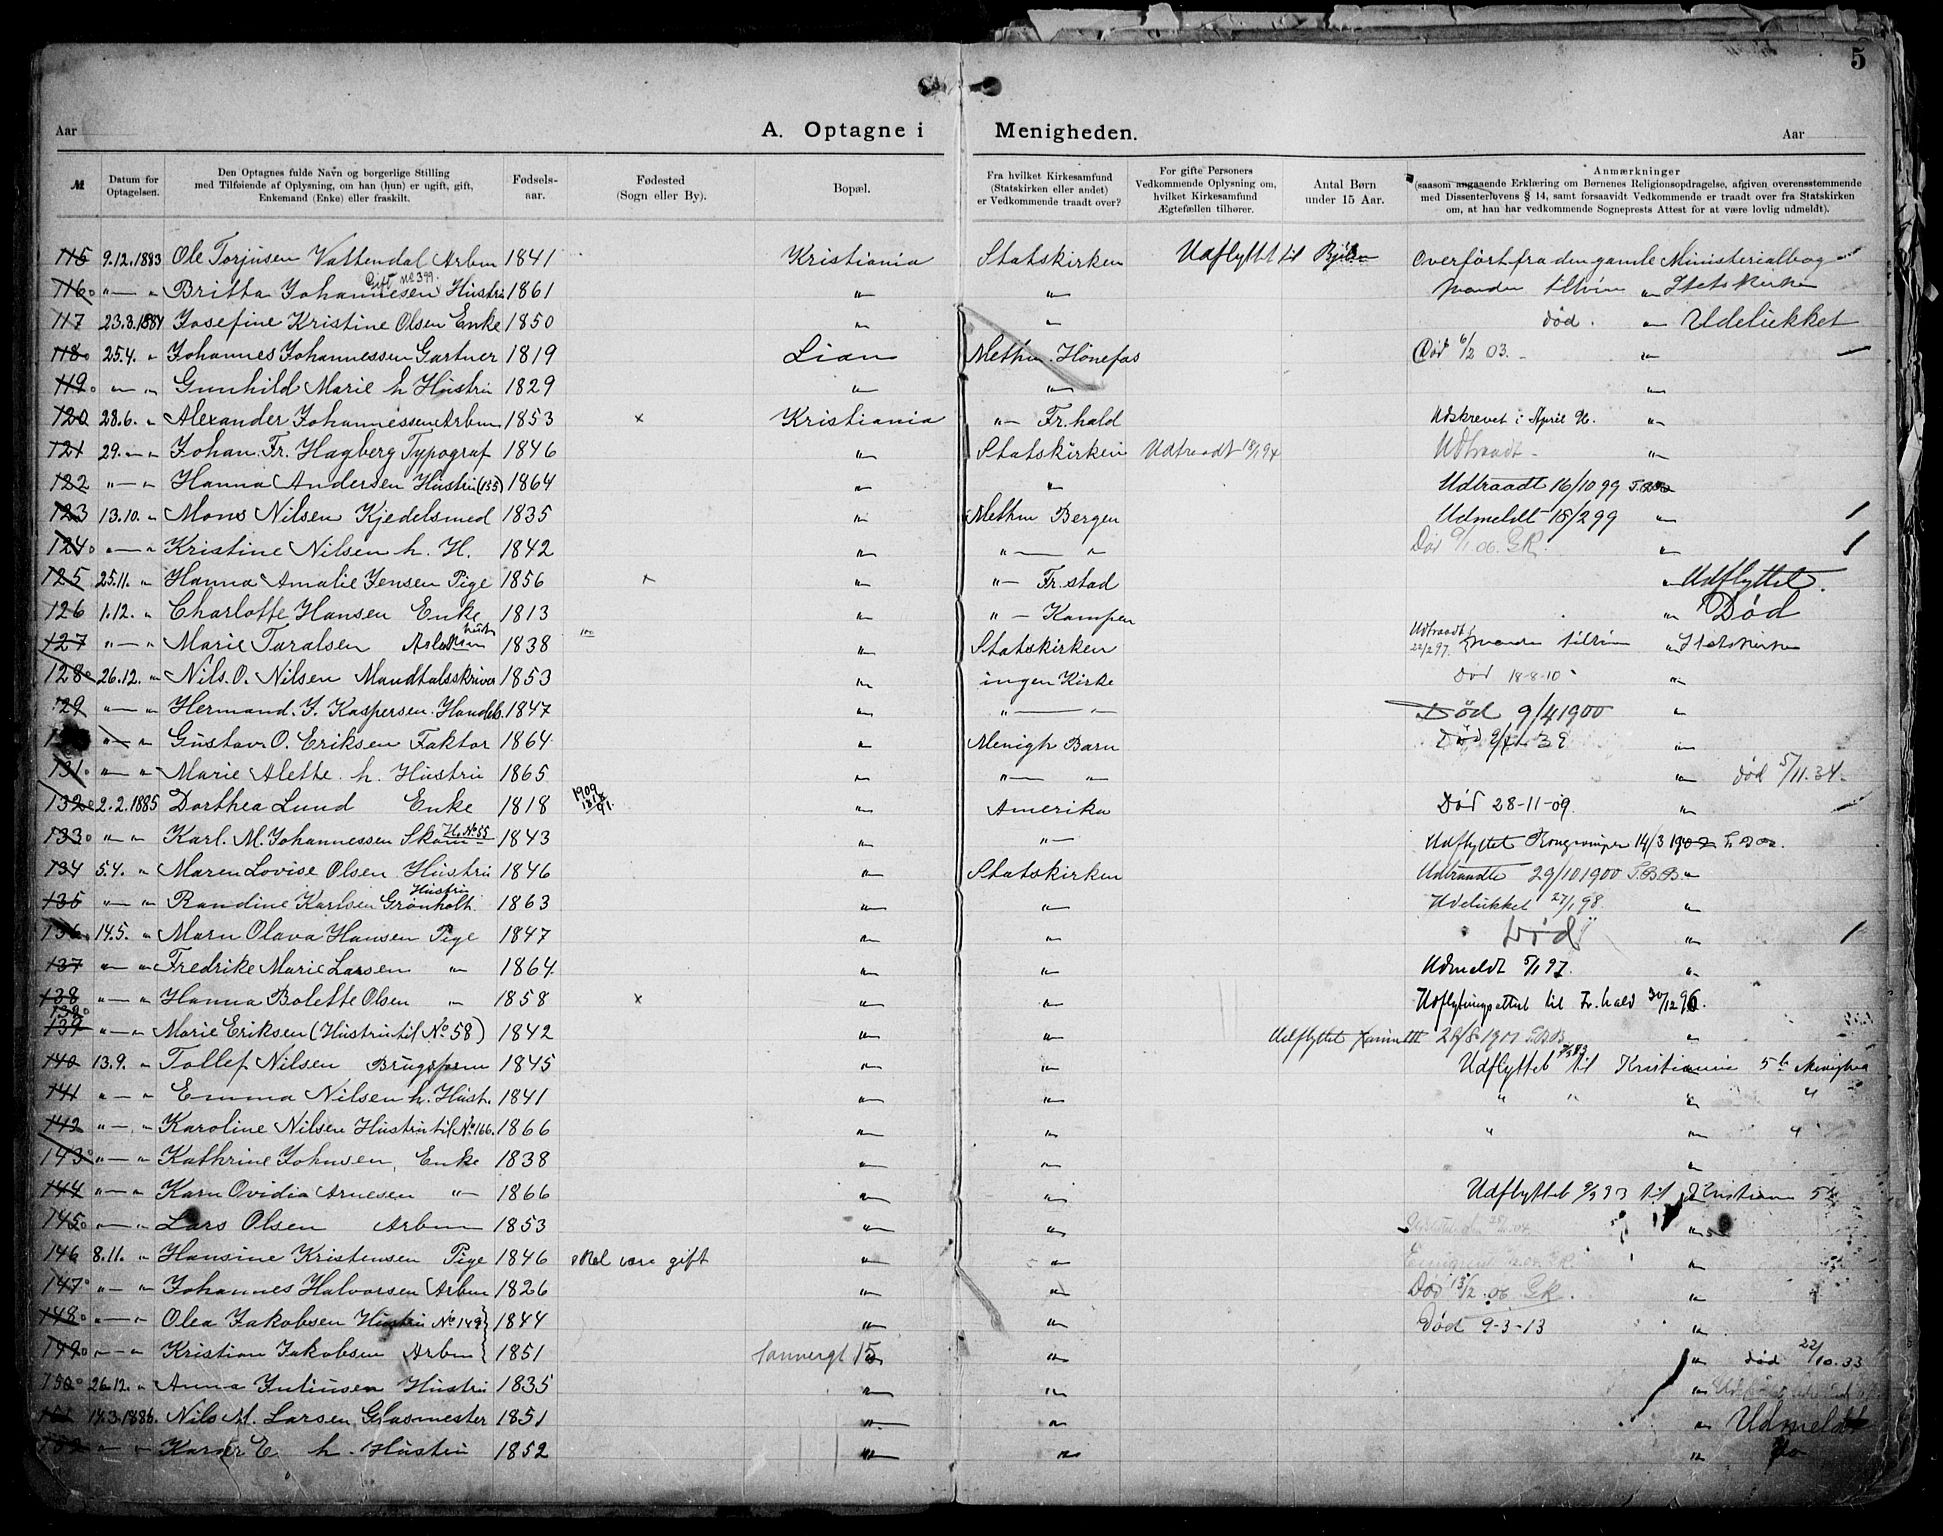 5
Aar
A. Optagne i Menigheden.
Aar
№
Datum for Optagelsen.
Den Optagnes fulde Navn og borgerlige Stilling
med Tilføielse af Oplysning, om han (hun) er ugift, gift,
Enkemand (Enke) eller fraskilt.
Fødsels-
aar.
Fødested
(Sogn eller By).
Bopæl.
Fra hvilket Kirkesamfund
(Statskirken eller andet)
er Vedkommende traadt over?
For gifte Personers
Vedkommende Oplysning om,
hvilket Kirkesamfund
Ægtefællen tilhører.
Antal Børn
under 15 Aar.
Anmærkninger
(saasom angaaende Erklæring om Børnenes Religionsopdragelse, afgiven overensstemmende
med Dissenterlovens § 14, samt forsaavidt Vedkommende er traadt over fra Statskirken
om, at han har vedkommende Sogneprests Attest for at være lovlig udmeldt).
115 9.12.1883 Ole Torjusen Vattendal Arbm 1841 Kristiania Statskirken Udflyttet til Overført fra den gamle Ministerialbog
Gift № 399
116 " — " Britta Johannesen Hustru 1861 " "
117 23.3.1884 Josefine Kristine Olsen Enke 1850 " " død. " Udelukket
118 25.4. " Johannes Johannessen Gartner 1819 Lian Methm. Hønefos Død 6/2 03. "
119 " " Gunhild Marie h. Hustru 1829 " " "
120 28.6. " Alexander Johannessen Arbm 1853 x Kristiania " Fr.hald Udskrevet i April "
121 29. " " Johan Fr. Hagberg Typograf 1846 " Statskirken Udtraadt 18/1 94 Udtraadt "
122 " — " Hanna Andersen Hustru (155) 1864 " " Udtraadt 16/10 99
123 13.10. " Mons Nilsen Kjedelsmed 1835 " Methm Bergen Udmeldt 18/2 99 "
124 " — " Kristine Nilsen h. H. 1842 " " — " Død 9/1 06. GR. "
125 25.11. " Hanna Amalie Jensen Pige 1856 x " " — Fr.stad " Udflyttet.
126 1.12. " Charlotte Hansen Enke 1813 " " — Kampen " Død
127 " — " Marie Taralsen 1838 " Statskirken Udtraadt 22/2 97. " Statskirken
128 26.12. " Nils. O. Nilsen Mandtalsskriver 1853 " ingen Kirke Død 18-8-10 "
129 " — " Hermand. J. Kaspersen. Handelsb. 1847 " " — " Død 9/4 1900 "
" " Gustav. O. Eriksen Faktor 1864 " Menigh Barn Død "
131 " — " Marie Alette h. Hustru 1865 " " — " " død 5/11.34.
132 2.2.1885 Dorthea Lund Enke 1818 1909 1818 91. " Amerika Død 28-11-09. "
133 " " Karl. M. Johannessen Skom H. No. 55 1843 " " — Udflyttet Kongsvinger 14/3
134 5.4. " Maren Lovise Olsen Hustru 1846 " Statskirken Udtraadte 29/10 1900 "
135 " — " Randine Karlsen Grønholt. Hustru 1863 " " Udelukket 27/1 98. "
136 14.5. " Maren Olava Hansen Pige 1847 " " Død "
137 " — " Fredrike Marie Larsen " 1864 " " Udmeldt 5/1 97. "
138 " — " Hanna Bolette Olsen " 1858 x " " Udflytningsattest til Fr. hald 30/12 96.
139 " — " Marie Eriksen (Hustru til No. 58) 1842 " " Udflyttet "
140 13.9. " Tollef Nilsen 1845 " " Udflyttet til Kristiania 5te Menighed
141 " — " Emma Nilsen h. Hust. 1841 " " " " " "
142 " — " Karoline Nilsen Hustru til No. 166. 1866 " " " " "
143 " — " Kathrine Johnsen, Enke 1838 " " "
144 " — " Karn Ovidia Arnesen " 1866 " " Udflyttet til Kristiania 5te
145 " — " Lars Olsen Arbm 1853 " " "
146 8.11. " Hansine Kristensen Pige 1846 skal være gift " " "
147 " — " Johannes Halvorsen Arbm 1826 " " Død 13/2 06. GR. "
148 " — " Olea Jakobsen Hustru No 149 1844 " " Død 9-3-13 "
149 " — " Kristian Jakobsen Arbm 1851 15 " " død 22/10.33
150 26.12. " Anna Juliusen Hustru 1835 " " "
151 14.3.1886. Nils M. Larsen Glasmester 1851 " " " Udmeldt
152 " " h. Hustru 1852 " " " Do